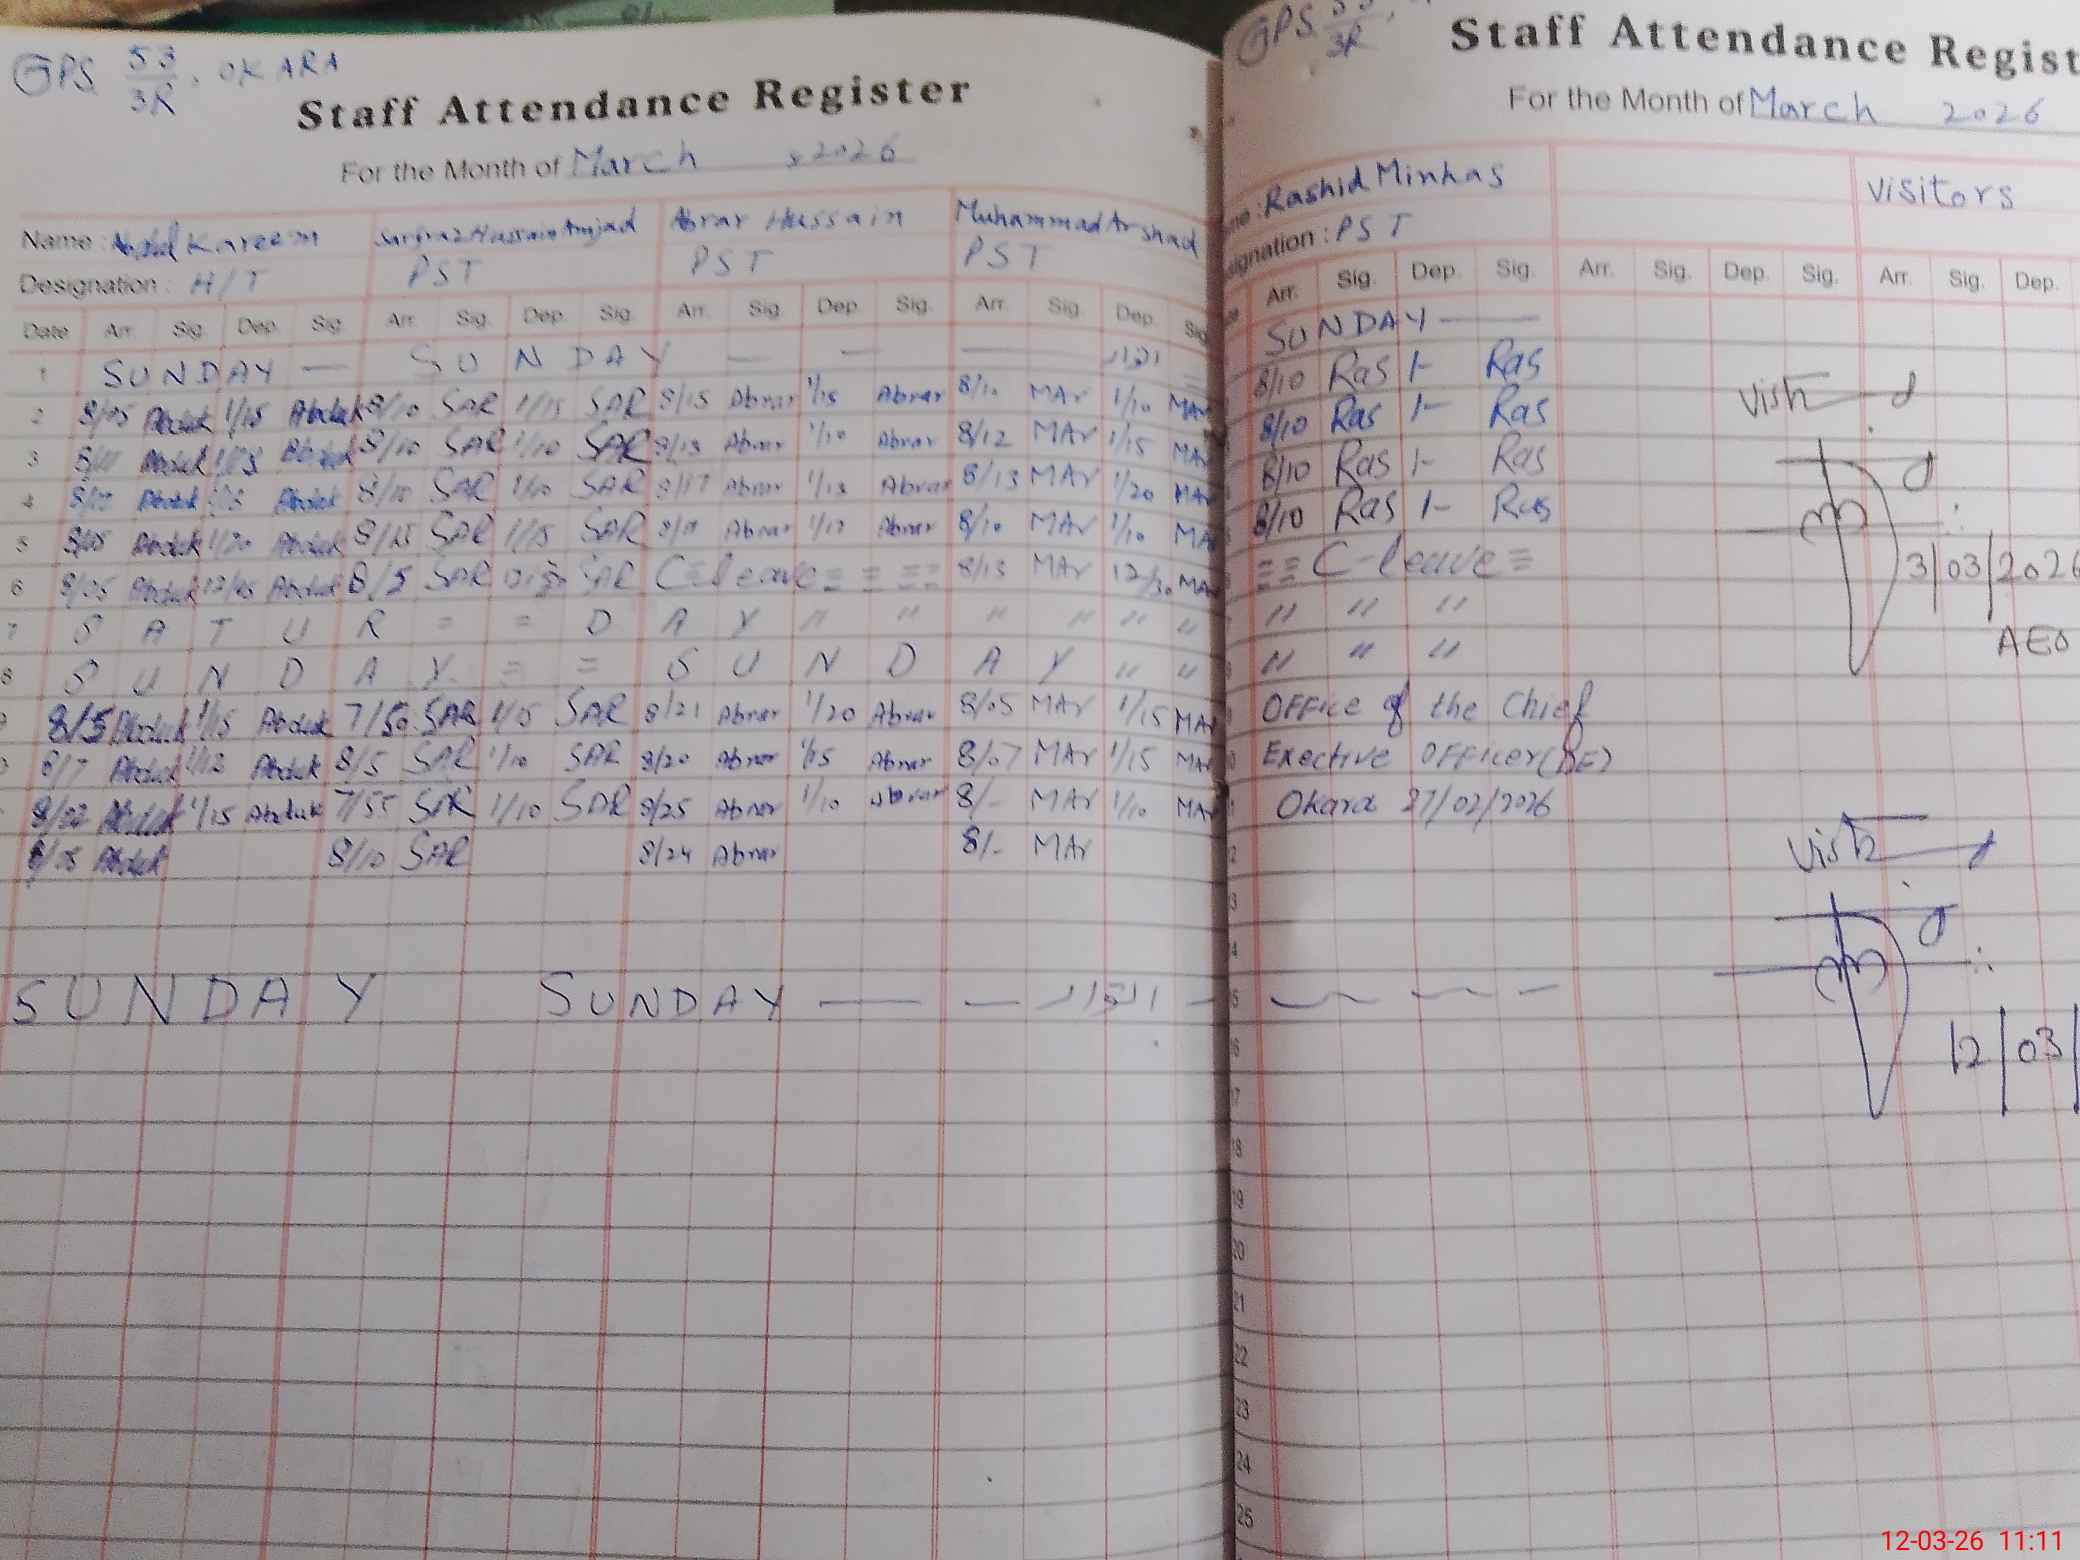 GPS 53/3R, OKARA
Staff Attendance Register
For the Month of March 2026
Name: Abdul Kareem Sarfraz Hussain Amjad Abrar Hussain Muhammad Arshad
Designation: H/T PST PST PST
Date Arr. Sig. Dep. Sig. Arr. Sig. Dep. Sig. Arr. Sig. Dep. Sig. Arr. Sig. Dep. Sig
1 SUNDAY — SUNDAY — — —
2 8/05 1/15 8/10 SAR 1/15 SAR 8/15 Abrar 1/15 Abrar 8/10 MAr 1/10 MAr
3 8/10 SAR 1/10 SAR 8/13 Abrar 1/10 Abrar 8/12 MAr 1/15 MAr
4 8/10 SAR 1/10 SAR 8/17 Abrar 1/13 Abrar 8/13 MAr 1/20 MAr
5 1/20 8/15 SAR 1/15 SAR Abrar Abrar 8/10 MAr 1/10 MAr
6 8/05 8/5 SAR SAR C-leave = = = = 8/13 MAr 12/30 MAr
7 SATUR = = DAY " " " " " "
8 SUNDAY = = SUNDAY " "
8/5 1/15 7/50 SAR 1/15 SAR 8/21 Abrar 1/20 Abrar 8/05 MAr 1/15 MAr
8/7 1/12 8/5 SAR 1/10 SAR 8/20 Abrar 1/15 Abrar 8/07 MAr 1/15 MAr
8/02 1/15 7/55 SAR 1/10 SAR 8/25 Abrar 1/10 Abrar 8/- MAr 1/10 MAr
8/05 8/10 SAR 8/24 Abrar 8/- MAr
SUNDAY SUNDAY — —
GPS 53/3R,
Staff Attendance Regist
For the Month of March 2026
me: Rashid Minhas Visitors
signation: PST
Arr. Sig. Dep. Sig. Arr. Sig. Dep. Sig. Arr. Sig. Dep.
SUNDAY —
8/10 Ras 1- Ras
8/10 Ras 1- Ras
8/10 Ras 1- Ras
8/10 Ras 1- Ras
== C-leave =
" " "
" " "
Office of the Chief
Exective Officer (DE)
Okara 27/02/2026
Visit
3/03/2026
AEO
Visit
12/03/
2
3
4
5
16
17
18
19
20
21
22
23
24
25
12-03-26 11:11